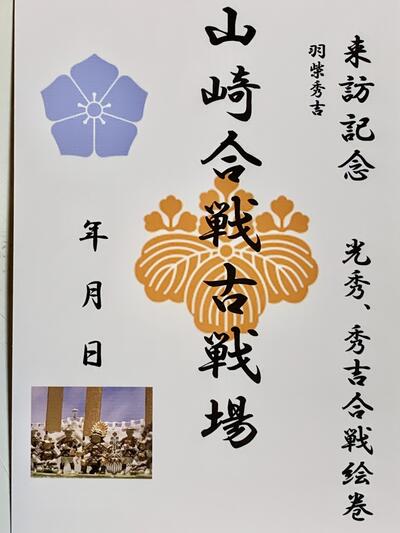 来訪記念 光秀、秀吉合戦絵巻
羽柴秀吉
山崎合戦古戦場
年月日